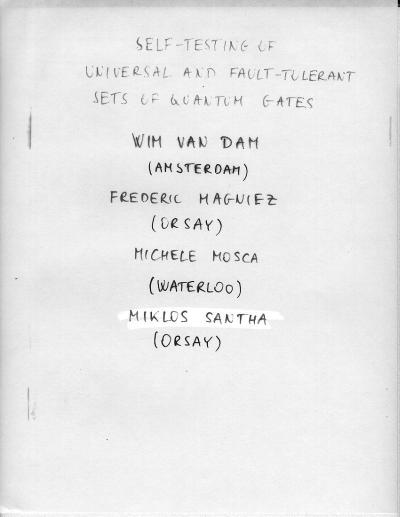 SELF-TESTING OF
UNIVERSAL AND FAULT-TOLERANT
SETS OF QUANTUM GATES
WIM VAN DAM
(AMSTERDAM)
FREDERIC MAGNIEZ
(ORSAY)
MICHELE MOSCA
(WATERLOO)
MIKLOS SANTHA
(ORSAY)